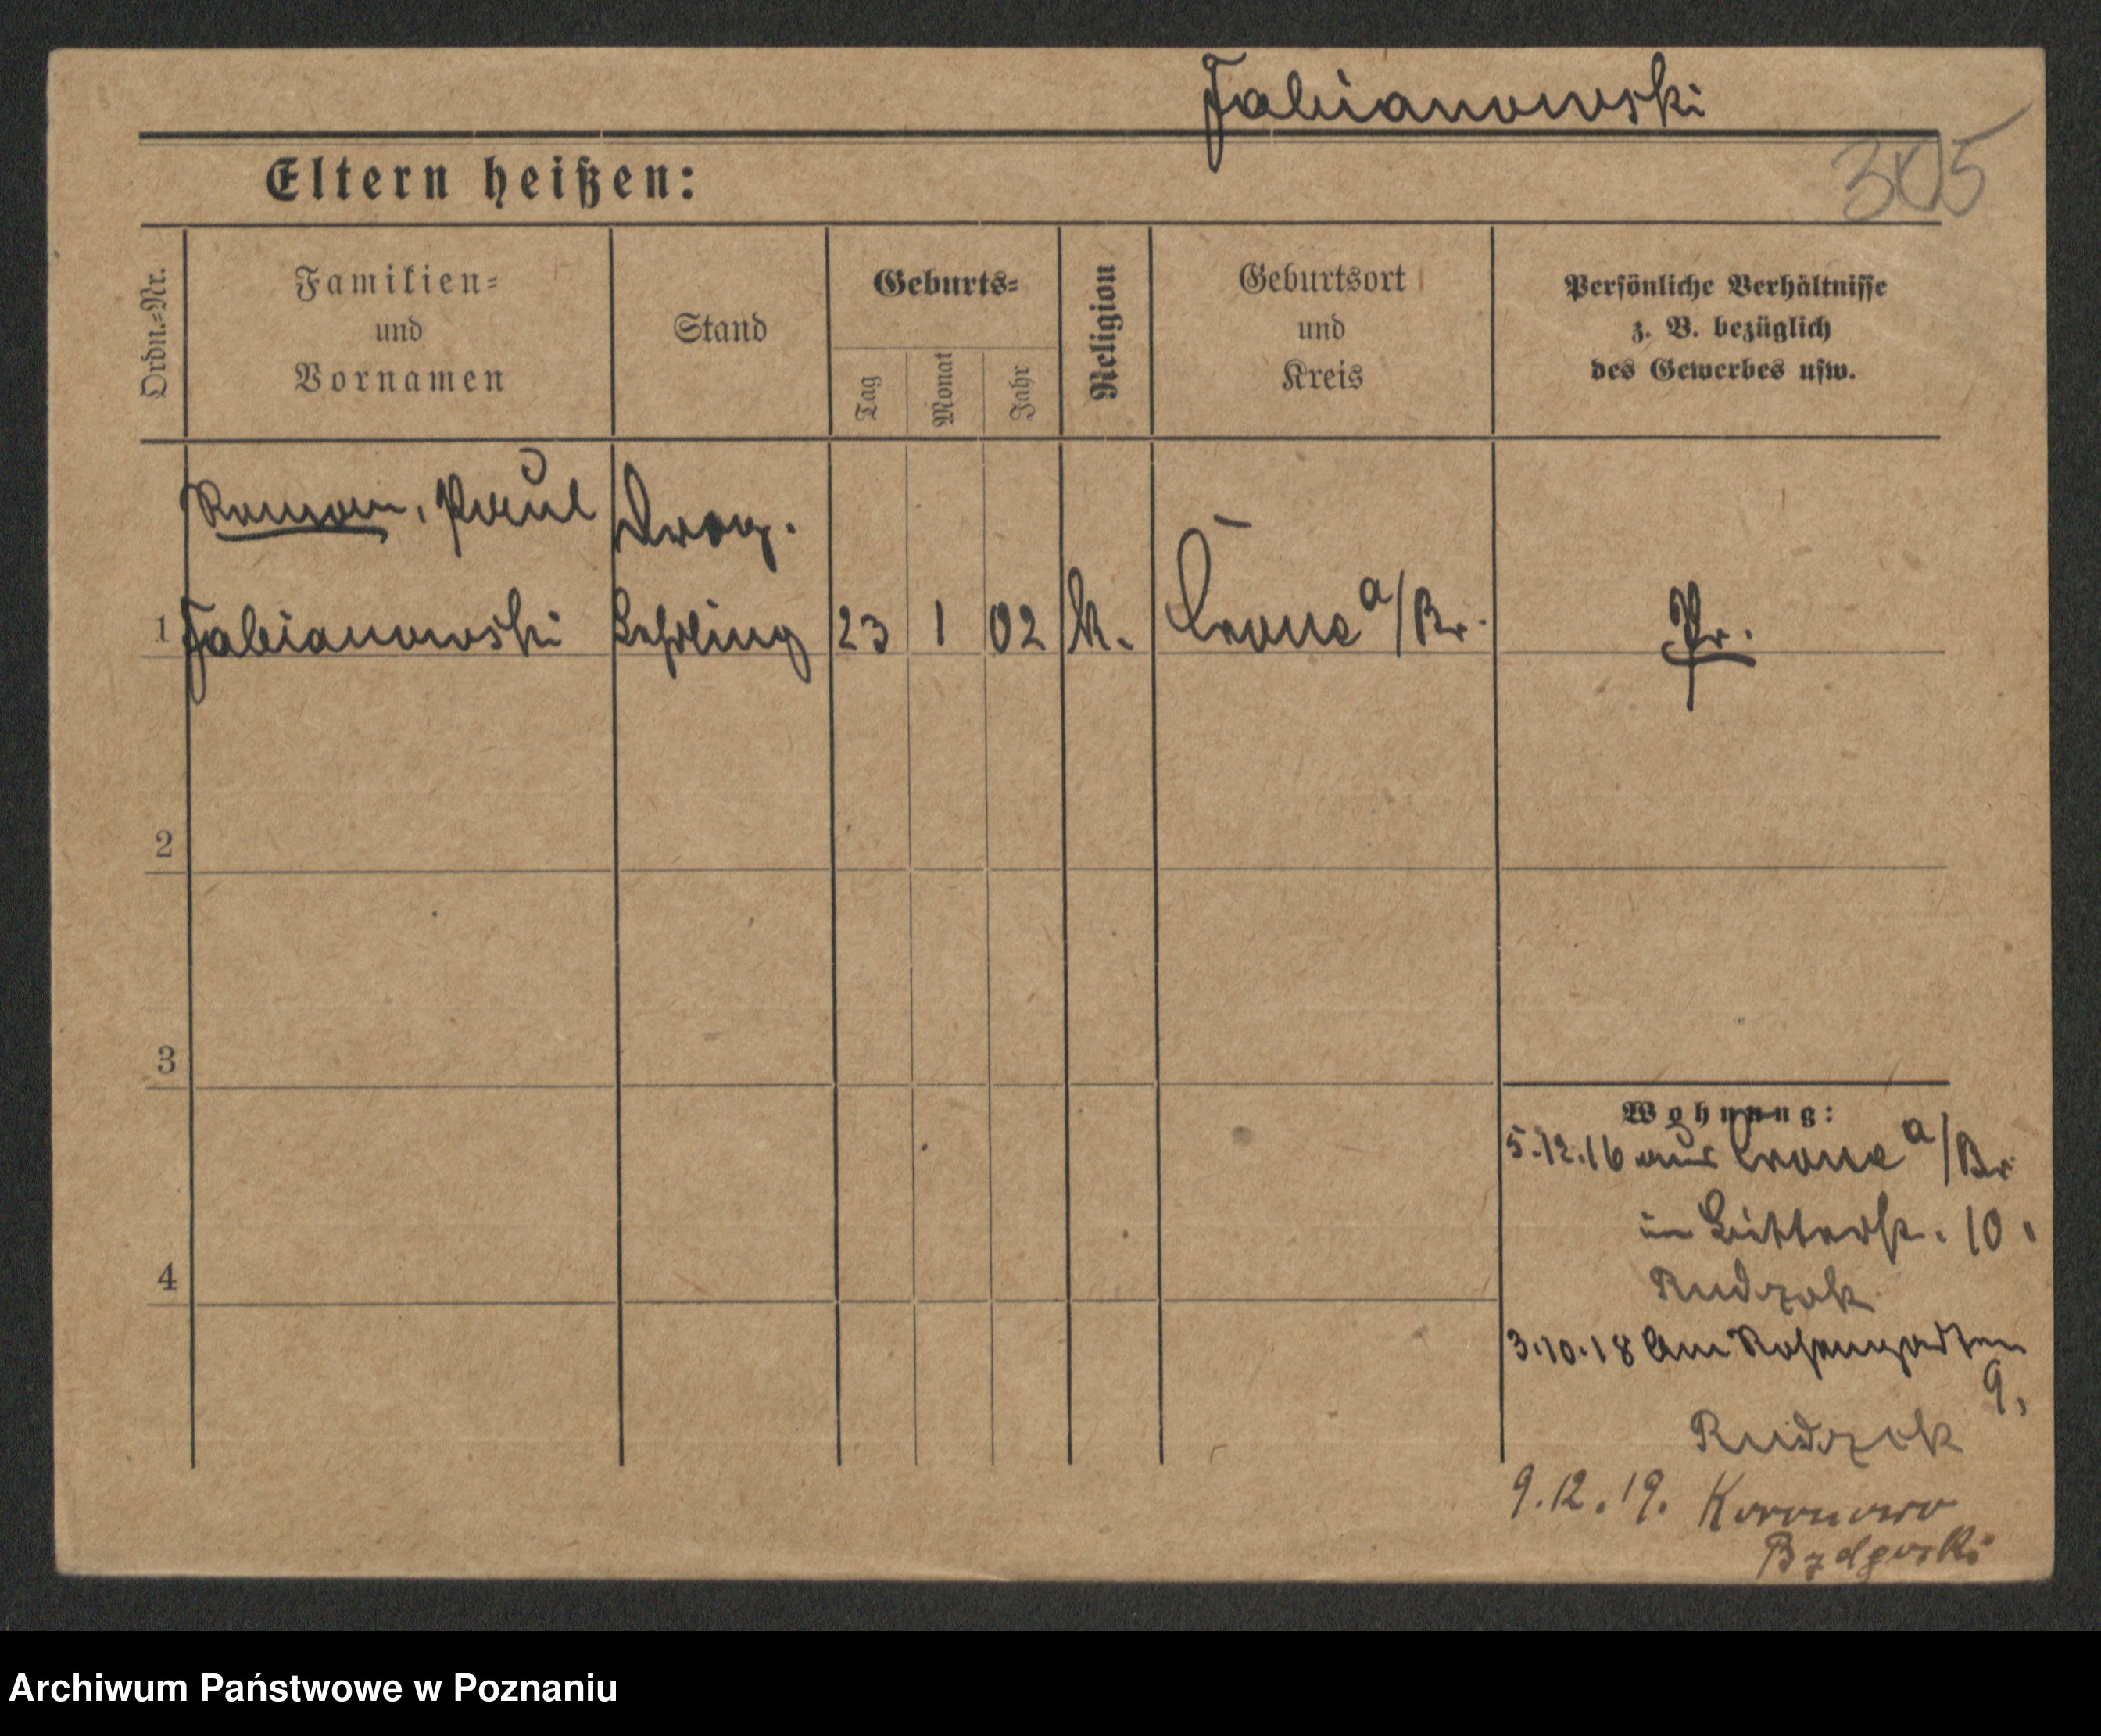 Fabianowski
305
Eltern heißen:
Ordn.-Nr.
Familien-
und
Vornamen
Stand
Geburts-
Tag
Monat
Jahr
Religion
Geburtsort
und
Kreis
Persönliche Verhältnisse
z. B. bezüglich
des Gewerbes usw.
Roman, Paul Drog.
1 Fabianowski Lehrling 23 1 02 k. Crone a/Br. Pr.
2
3
4
Wohnung:
5.12.16 aus Crone a/Br.
in Ritterstr. 10.
Rudzok
3.10.18 Am Rosengarten
9,
Rudzok
9.12.19. Koronowo
Bydgoski
Archiwum Państwowe w Poznaniu